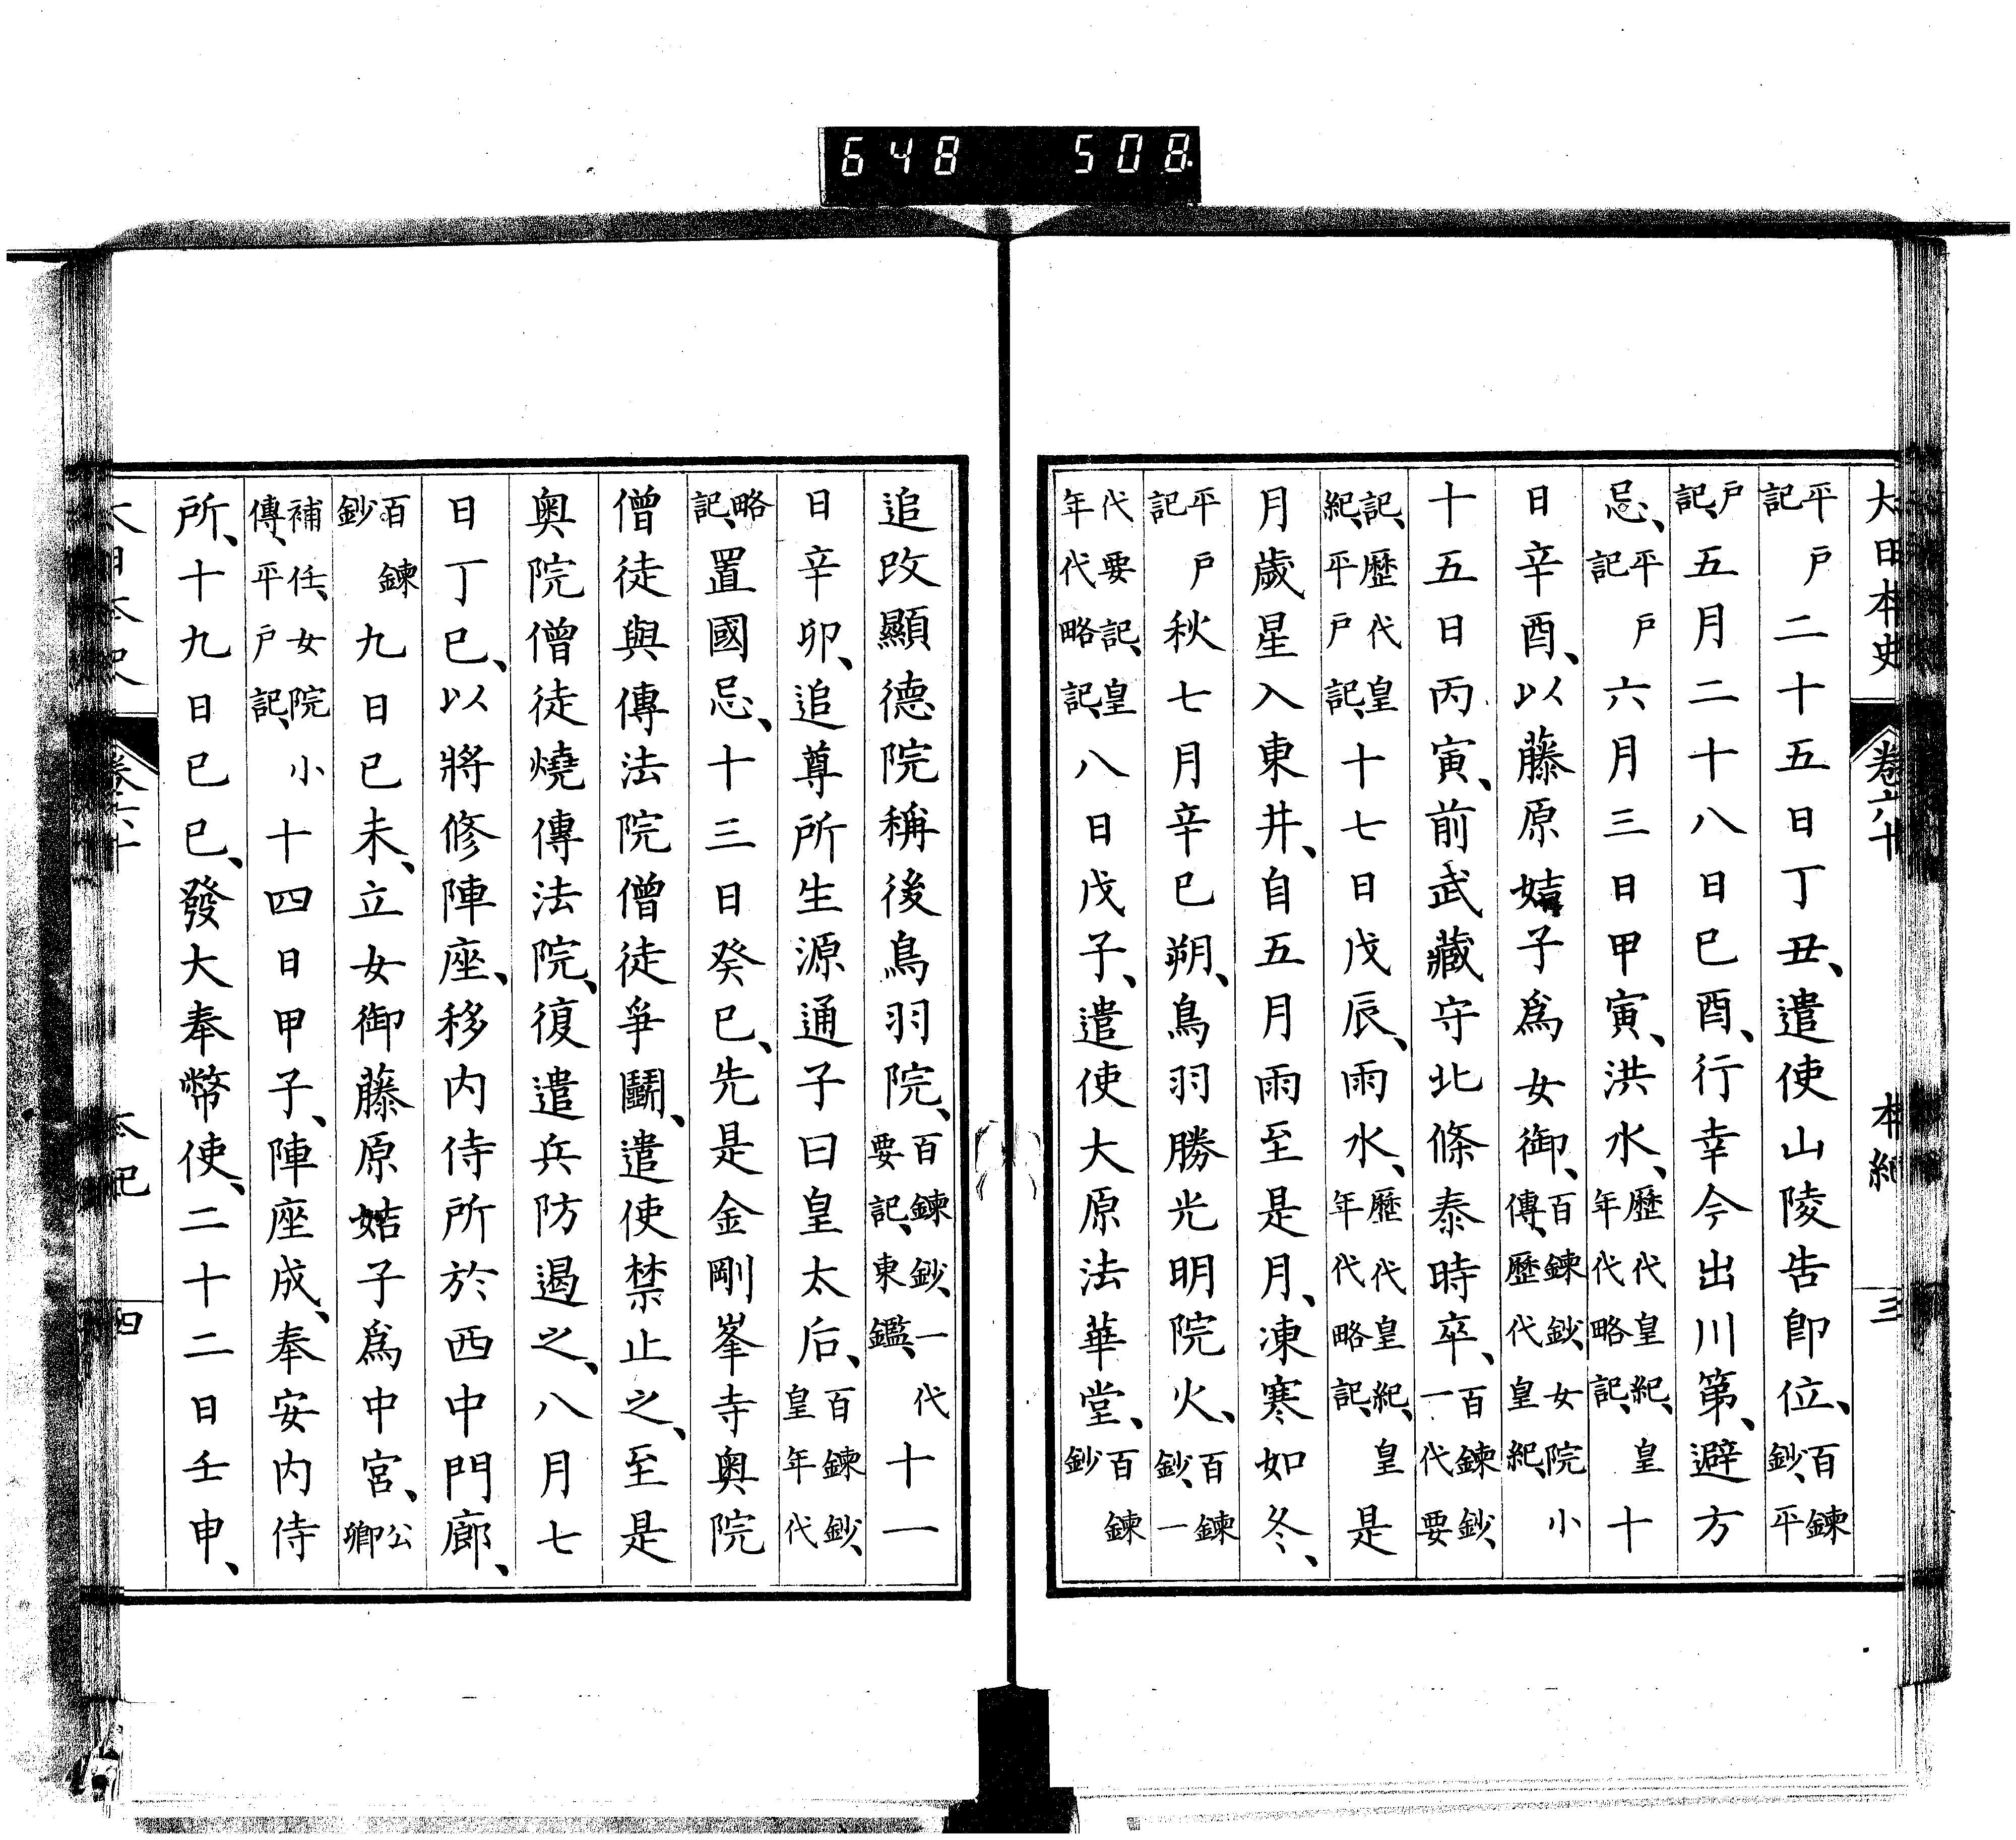 大日本史 卷六十 本紀 三
平戶記二十五日丁丑、遣使山陵告卽位、百鍊鈔、平
戶記、五月二十八日巳酉、行幸今出川第、避方
忌、平戶記六月三日甲寅、洪水、歷代皇紀、皇年代略記、十
日辛酉、以藤原嬉子爲女御、百鍊鈔、女院小傳、歷代皇紀、
十五日丙寅、前武藏守北條泰時卒、百鍊鈔、一代要
記、歷代皇紀、平戶記、十七日戊辰、雨水、歷代皇紀、皇年代略記、是
月歲星入東井、自五月雨至是月、凍寒如冬、
平戶記秋七月辛巳朔、鳥羽勝光明院火、百鍊鈔、一
代要記、皇年代略記、八日戊子、遣使大原法華堂、百鍊鈔
追改顯德院稱後鳥羽院、百鍊鈔、一代要記、東鑑、十一
日辛卯、追尊所生源通子曰皇太后、百鍊鈔、皇年代
略記、置國忌、十三日癸巳、先是金剛峯寺奧院
僧徒與傳法院僧徒爭鬭、遣使禁止之、至是
奧院僧徒燒傳法院、復遣兵防遏之、八月七
日丁巳、以將修陣座、移內侍所於西中門廊、
百鍊鈔九日己未、立女御藤原姞子爲中宮、公卿
補任、女院小傳、平戶記、十四日甲子、陣座成、奉安內侍
所、十九日己巳、發大奉幣使、二十二日壬申、
大日本史 卷六十 本紀 四